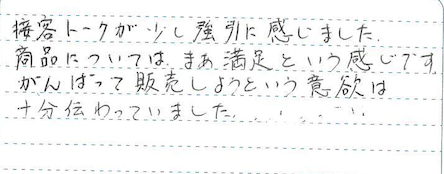 接客トークが少し強引に感じました.
商品については、まあ満足という感じです
がんばって販売しようという意欲は
十分伝わっていました.